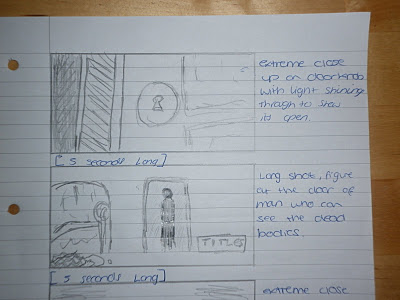 extreme close
up on doorknob
with light shining
through to show
its open.
[5 seconds long]
Long shot, figure
at the door of
man who can
see the dead
bodies.
TITLES
[5 seconds long]
extreme close